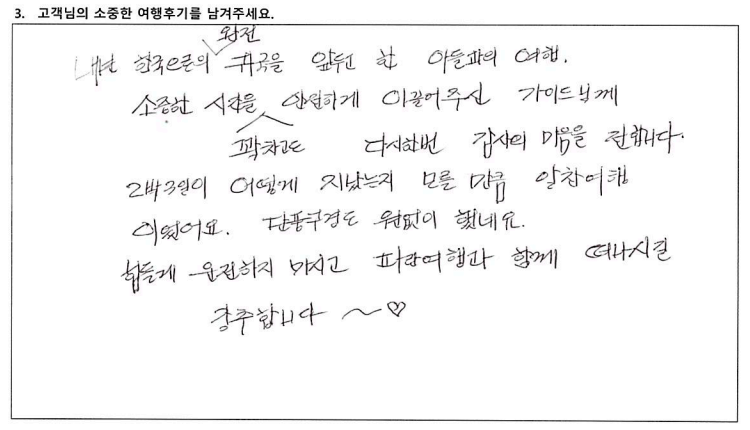 3. 고객님의 소중한 여행후기를 남겨주세요.
완전
내년 한국으로의 귀국을 앞두고 한 아들과의 여행.
소중한 시간을 안전하게 이끌어주신 가이드님께
꽉차고도
다시한번 감사의 마음을 전합니다.
2박3일이 어떻게 지났는지 모를 만큼 알찬여행
이었어요. 단풍구경도 원없이 했네요.
힘들게 운전하지 마시고 파란여행과 함께 떠나시길
강추합니다 ~♡